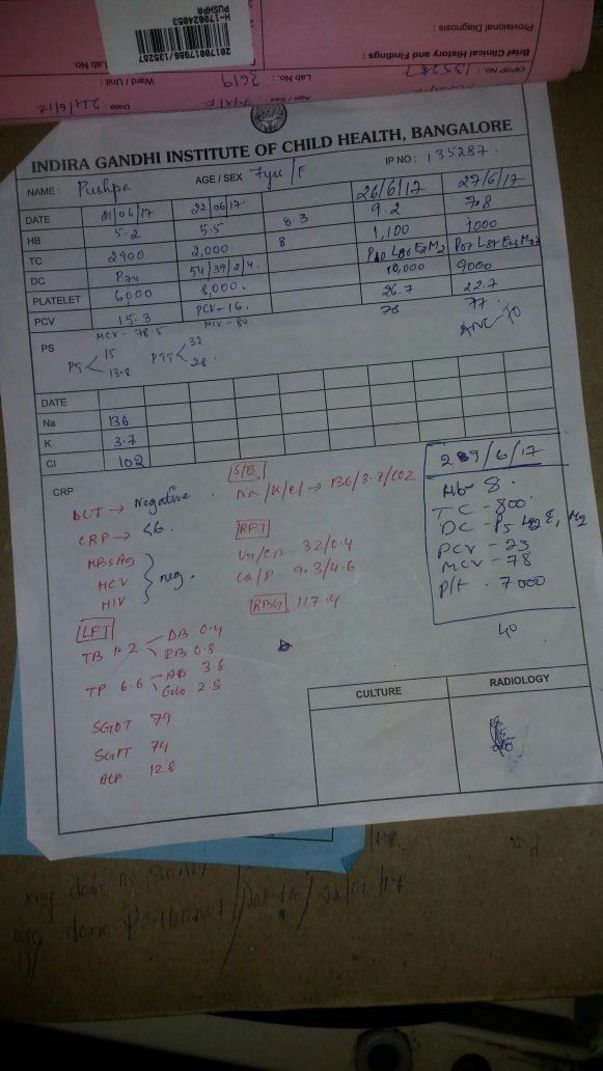 Provisional Diagnosis :
Brief Clinical History and Findings :
OP/IP No.: 135287
Lab No.: 2619
Ward / Unit :
Lab No
Age / Sex
Date : 21/6/17
20170017986/135287
H-170624053
PUSHPA
INDIRA GANDHI INSTITUTE OF CHILD HEALTH, BANGALORE
NAME : Pushpa AGE / SEX 7yrs/F IP NO : 135287.
DATE 21/06/17 22/06/17 26/6/17 27/6/17
HB 5.2 5.5 8.3 9.2 7.8
TC 2900 2,000 8 1,100 1000
DC P74 54/39/2/4.
PLATELET 6000 8,000. 10,000 9000
PCV 15.3 PCV-16. 26.7 22.7
MCV - 78.5 MCV - 80 78 77
PS
ANC-70
PT 15 13.8 PTT 32 28
DATE
Na 136
K 3.7
Cl 102
CRP
DCT → Negative.
CRP → <6.
HBsAg
HCV
HIV
neg.
S/E
Na/K/Cl → 136/3.7/102
RFT
Ur/Cr 32/0.4
Ca/P 9.3/4.6
RBG 117.4
LFT
TB 1.2 DB 0.4
IB 0.8
TP 6.6 Alb 3.8
Glo 2.8
SGOT 79
SGPT 74
ALP 128
289/6/17
Hb- 8.
TC - 800.
PCV - 23
MCV - 78
Plt . 7000
40
CULTURE RADIOLOGY